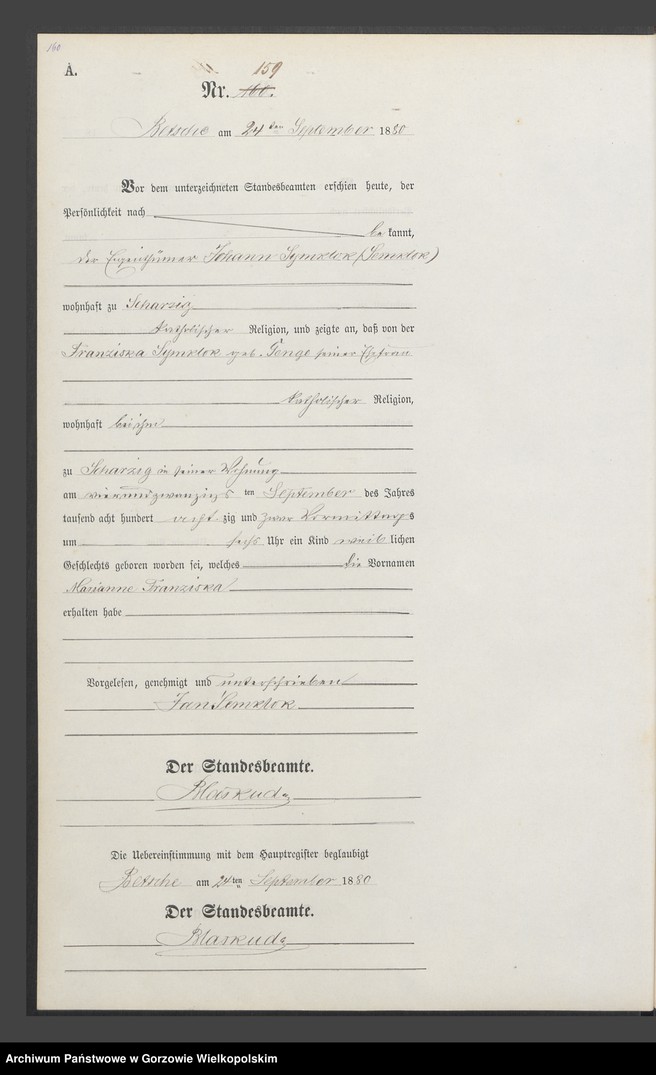 160
A.
159
Nr. 160.
Betsche am 24ten September 1880
Vor dem unterzeichneten Standesbeamten erschien heute, der
Persönlichkeit nach
be kannt,
der Eigenthümer Johann Symktok (Semktok)
wohnhaft zu Scharzig
katholischer Religion, und zeigte an, daß von der
Franziska Symktok geb. Gonge seiner Ehefrau
katholischer Religion,
wohnhaft bei ihm
zu Scharzig in seiner Wohnung
am vierundzwanzigs ten September des Jahres
tausend acht hundert acht zig und zwar Vormittags
um sechs Uhr ein Kind weib lichen
Geschlechts geboren worden sei, welches die Vornamen
Marianne Franziska
erhalten habe
Vorgelesen, genehmigt und unterschrieben
Jan Semktok
Der Standesbeamte.
Blaskuda
Die Uebereinstimmung mit dem Hauptregister beglaubigt
Betsche am 24ten September 1880
Der Standesbeamte.
Blaskuda
Archiwum Państwowe w Gorzowie Wielkopolskim